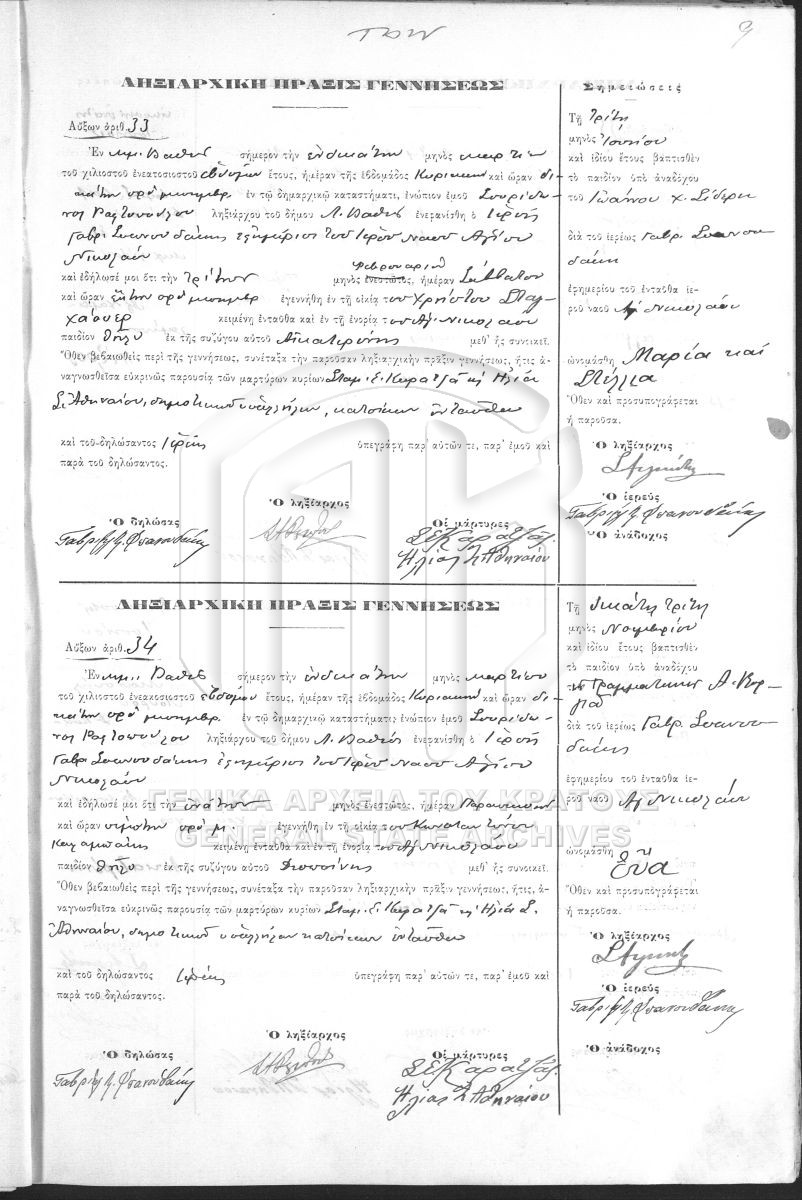 9
ΛΗΞΙΑΡΧΙΚΗ ΠΡΑΞΙΣ ΓΕΝΝΗΣΕΩΣ
Αὔξων ἀριθ. 33
Ἐν Βαθεῖ σήμερον τὴν ἑνδεκάτην μηνὸς Μαρτίου
τοῦ χιλιοστοῦ ἐνεακοσιοστοῦ ἑβδόμου ἔτους, ἡμέραν τῆς ἑβδομάδος Κυριακὴν καὶ ὥραν δε-
κάτην πρὸ μεσημβρ. ἐν τῷ δημαρχικῷ καταστήματι, ἐνώπιον ἐμοῦ Σπυρίδω-
νος ληξιάρχου τοῦ δήμου Λ. Βαθέος ἐνεφανίσθη ὁ Ἱερεὺς
Γαβρ. ἐφημέριος τοῦ Ἱεροῦ Ναοῦ Ἁγίου
Νικολάου
Φεβρουαρίου
καὶ ἐδήλωσέ μοι ὅτι τὴν τρίτην μηνὸς ἐνεστῶτος, ἡμέραν Σάββατον
καὶ ὥραν ἕκτην πρὸ μεσημβρ. ἐγεννήθη ἐν τῇ οἰκίᾳ τοῦ Χρήστου
κειμένῃ ἐνταῦθα καὶ ἐν τῇ ἐνορίᾳ τοῦ Ἁγ. Νικολάου
παιδίον θῆλυ ἐκ τῆς συζύγου αὐτοῦ Αἰκατερίνης μεθ' ἧς συνοικεῖ.
Ὅθεν βεβαιωθεὶς περὶ τῆς γεννήσεως, συνέταξα τὴν παροῦσαν ληξιαρχικὴν πρᾶξιν γεννήσεως, ἥτις ἀ-
ναγνωσθεῖσα εὐκρινῶς παρουσίᾳ τῶν μαρτύρων κυρίων Σταμ. Σ. Καρατζᾶ κ' Ἠλία
Σ. Ἀθηναίου, δημοτικῶν ὑπαλλήλων, κατοίκων ἐνταῦθα
καὶ τοῦ δηλώσαντος Ἱερέως ὑπεγράφη παρ' αὐτῶν τε, παρ' ἐμοῦ καὶ
παρὰ τοῦ δηλώσαντος.
Ὁ δηλώσας
Ὁ ληξίαρχος
Οἱ μάρτυρες
Σ. Καρατζᾶς
Ἠλίας Σ. Ἀθηναίου
Σημειώσεις
Τῇ Τρίτῃ
μηνὸς Ἰουνίου
καὶ ἰδίου ἔτους βαπτισθὲν
τὸ παιδίον ὑπὸ ἀναδόχου
τοῦ Ἰωάννου χ. Σιδερῆ
διὰ τοῦ ἱερέως Γαβρ.
ἐφημερίου τοῦ ἐνταῦθα ἱε-
ροῦ ναοῦ Ἁγ. Νικολάου
ὠνομάσθη Μαρία καὶ
Στέλλα
Ὅθεν καὶ προσυπογράφεται
ἡ παροῦσα.
Ὁ ληξίαρχος
Ὁ ἱερεὺς
Ὁ ἀνάδοχος
ΛΗΞΙΑΡΧΙΚΗ ΠΡΑΞΙΣ ΓΕΝΝΗΣΕΩΣ
Αὔξων ἀριθ. 34
Ἐν Βαθεῖ σήμερον τὴν ἑνδεκάτην μηνὸς Μαρτίου
τοῦ χιλιοστοῦ ἐνεακοσιοστοῦ ἑβδόμου ἔτους, ἡμέραν τῆς ἑβδομάδος Κυριακὴν καὶ ὥραν δε-
κάτην πρὸ μεσημβρ. ἐν τῷ δημαρχικῷ καταστήματι, ἐνώπιον ἐμοῦ Σπυρίδω-
νος ληξιάρχου τοῦ δήμου Λ. Βαθέος ἐνεφανίσθη ὁ Ἱερεὺς
Γαβρ. ἐφημέριος τοῦ Ἱεροῦ Ναοῦ Ἁγίου
Νικολάου
καὶ ἐδήλωσέ μοι ὅτι τὴν ἐνάτην μηνὸς ἐνεστῶτος, ἡμέραν Παρασκευὴν
καὶ ὥραν πέμπτην πρὸ μ. ἐγεννήθη ἐν τῇ οἰκίᾳ τοῦ Κωνσταντίνου
κειμένῃ ἐνταῦθα καὶ ἐν τῇ ἐνορίᾳ τοῦ Ἁγ. Νικολάου
παιδίον θῆλυ ἐκ τῆς συζύγου αὐτοῦ Δεσποίνης μεθ' ἧς συνοικεῖ.
Ὅθεν βεβαιωθεὶς περὶ τῆς γεννήσεως, συνέταξα τὴν παροῦσαν ληξιαρχικὴν πρᾶξιν γεννήσεως, ἥτις, ἀ-
ναγνωσθεῖσα εὐκρινῶς παρουσίᾳ τῶν μαρτύρων κυρίων Σταμ. Σ. Καρατζᾶ κ' Ἠλία Σ.
Ἀθηναίου, δημοτικῶν ὑπαλλήλων κατοίκων ἐνταῦθα
καὶ τοῦ δηλώσαντος Ἱερέως ὑπεγράφη παρ' αὐτῶν τε, παρ' ἐμοῦ καὶ
παρὰ τοῦ δηλώσαντος.
Ὁ δηλώσας
Ὁ ληξίαρχος
Οἱ μάρτυρες
Σ. Καρατζᾶς
Ἠλίας Σ. Ἀθηναίου
Τῇ δεκάτῃ τρίτῃ
μηνὸς Νοεμβρίου
καὶ ἰδίου ἔτους βαπτισθὲν
τὸ παιδίον ὑπὸ ἀναδόχου
Γραμματικῆς Α.
διὰ τοῦ ἱερέως Γαβρ.
ἐφημερίου τοῦ ἐνταῦθα ἱε-
ροῦ ναοῦ Ἁγ. Νικολάου
ὠνομάσθη
Εὔα
Ὅθεν καὶ προσυπογράφεται
ἡ παροῦσα.
Ὁ ληξίαρχος
Ὁ ἱερεὺς
Ὁ ἀνάδοχος
ΓΕΝΙΚΑ ΑΡΧΕΙΑ ΤΟΥ ΚΡΑΤΟΥΣ
GENERAL STATE ARCHIVES